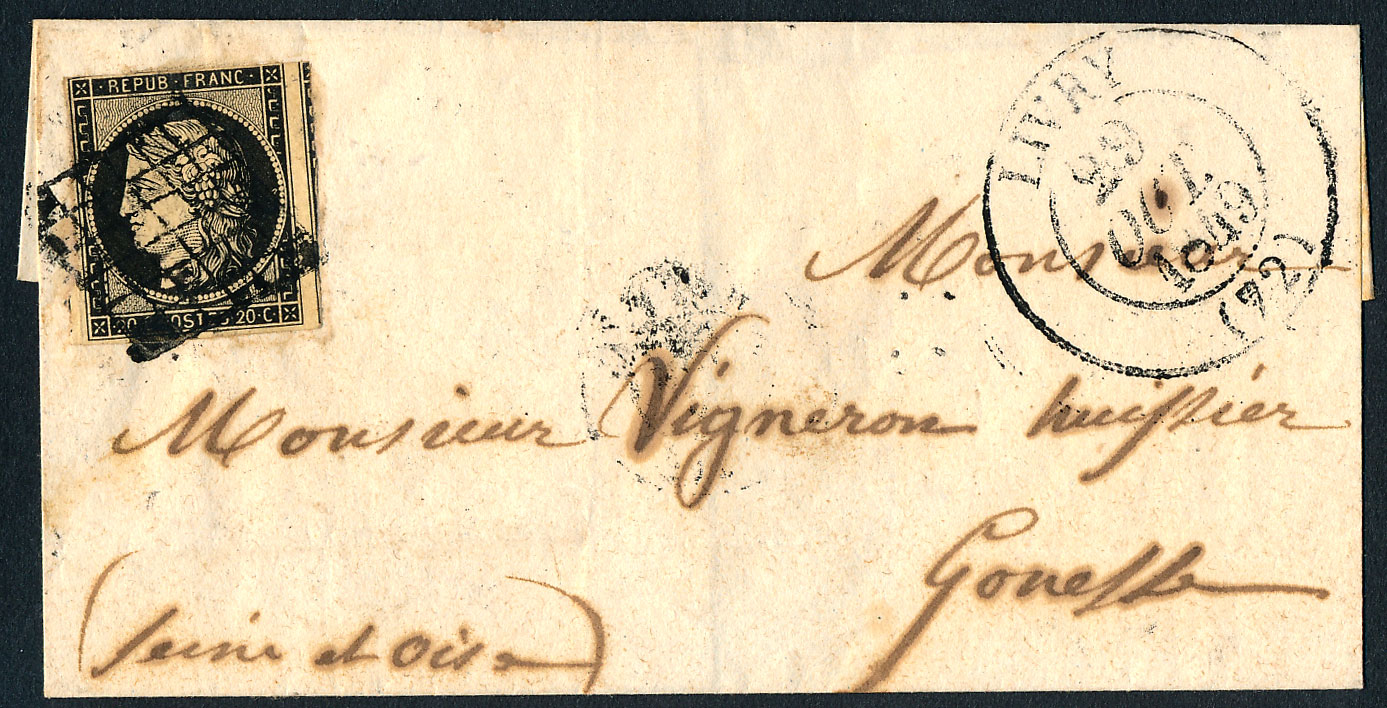 REPUB · FRANC ·
20 · C POSTES 20 · C
LIVRY
29
OCT.
1849
(72)
Monsieur
Monsieur Vigneron huissier
Gonesse
(seine et oise)